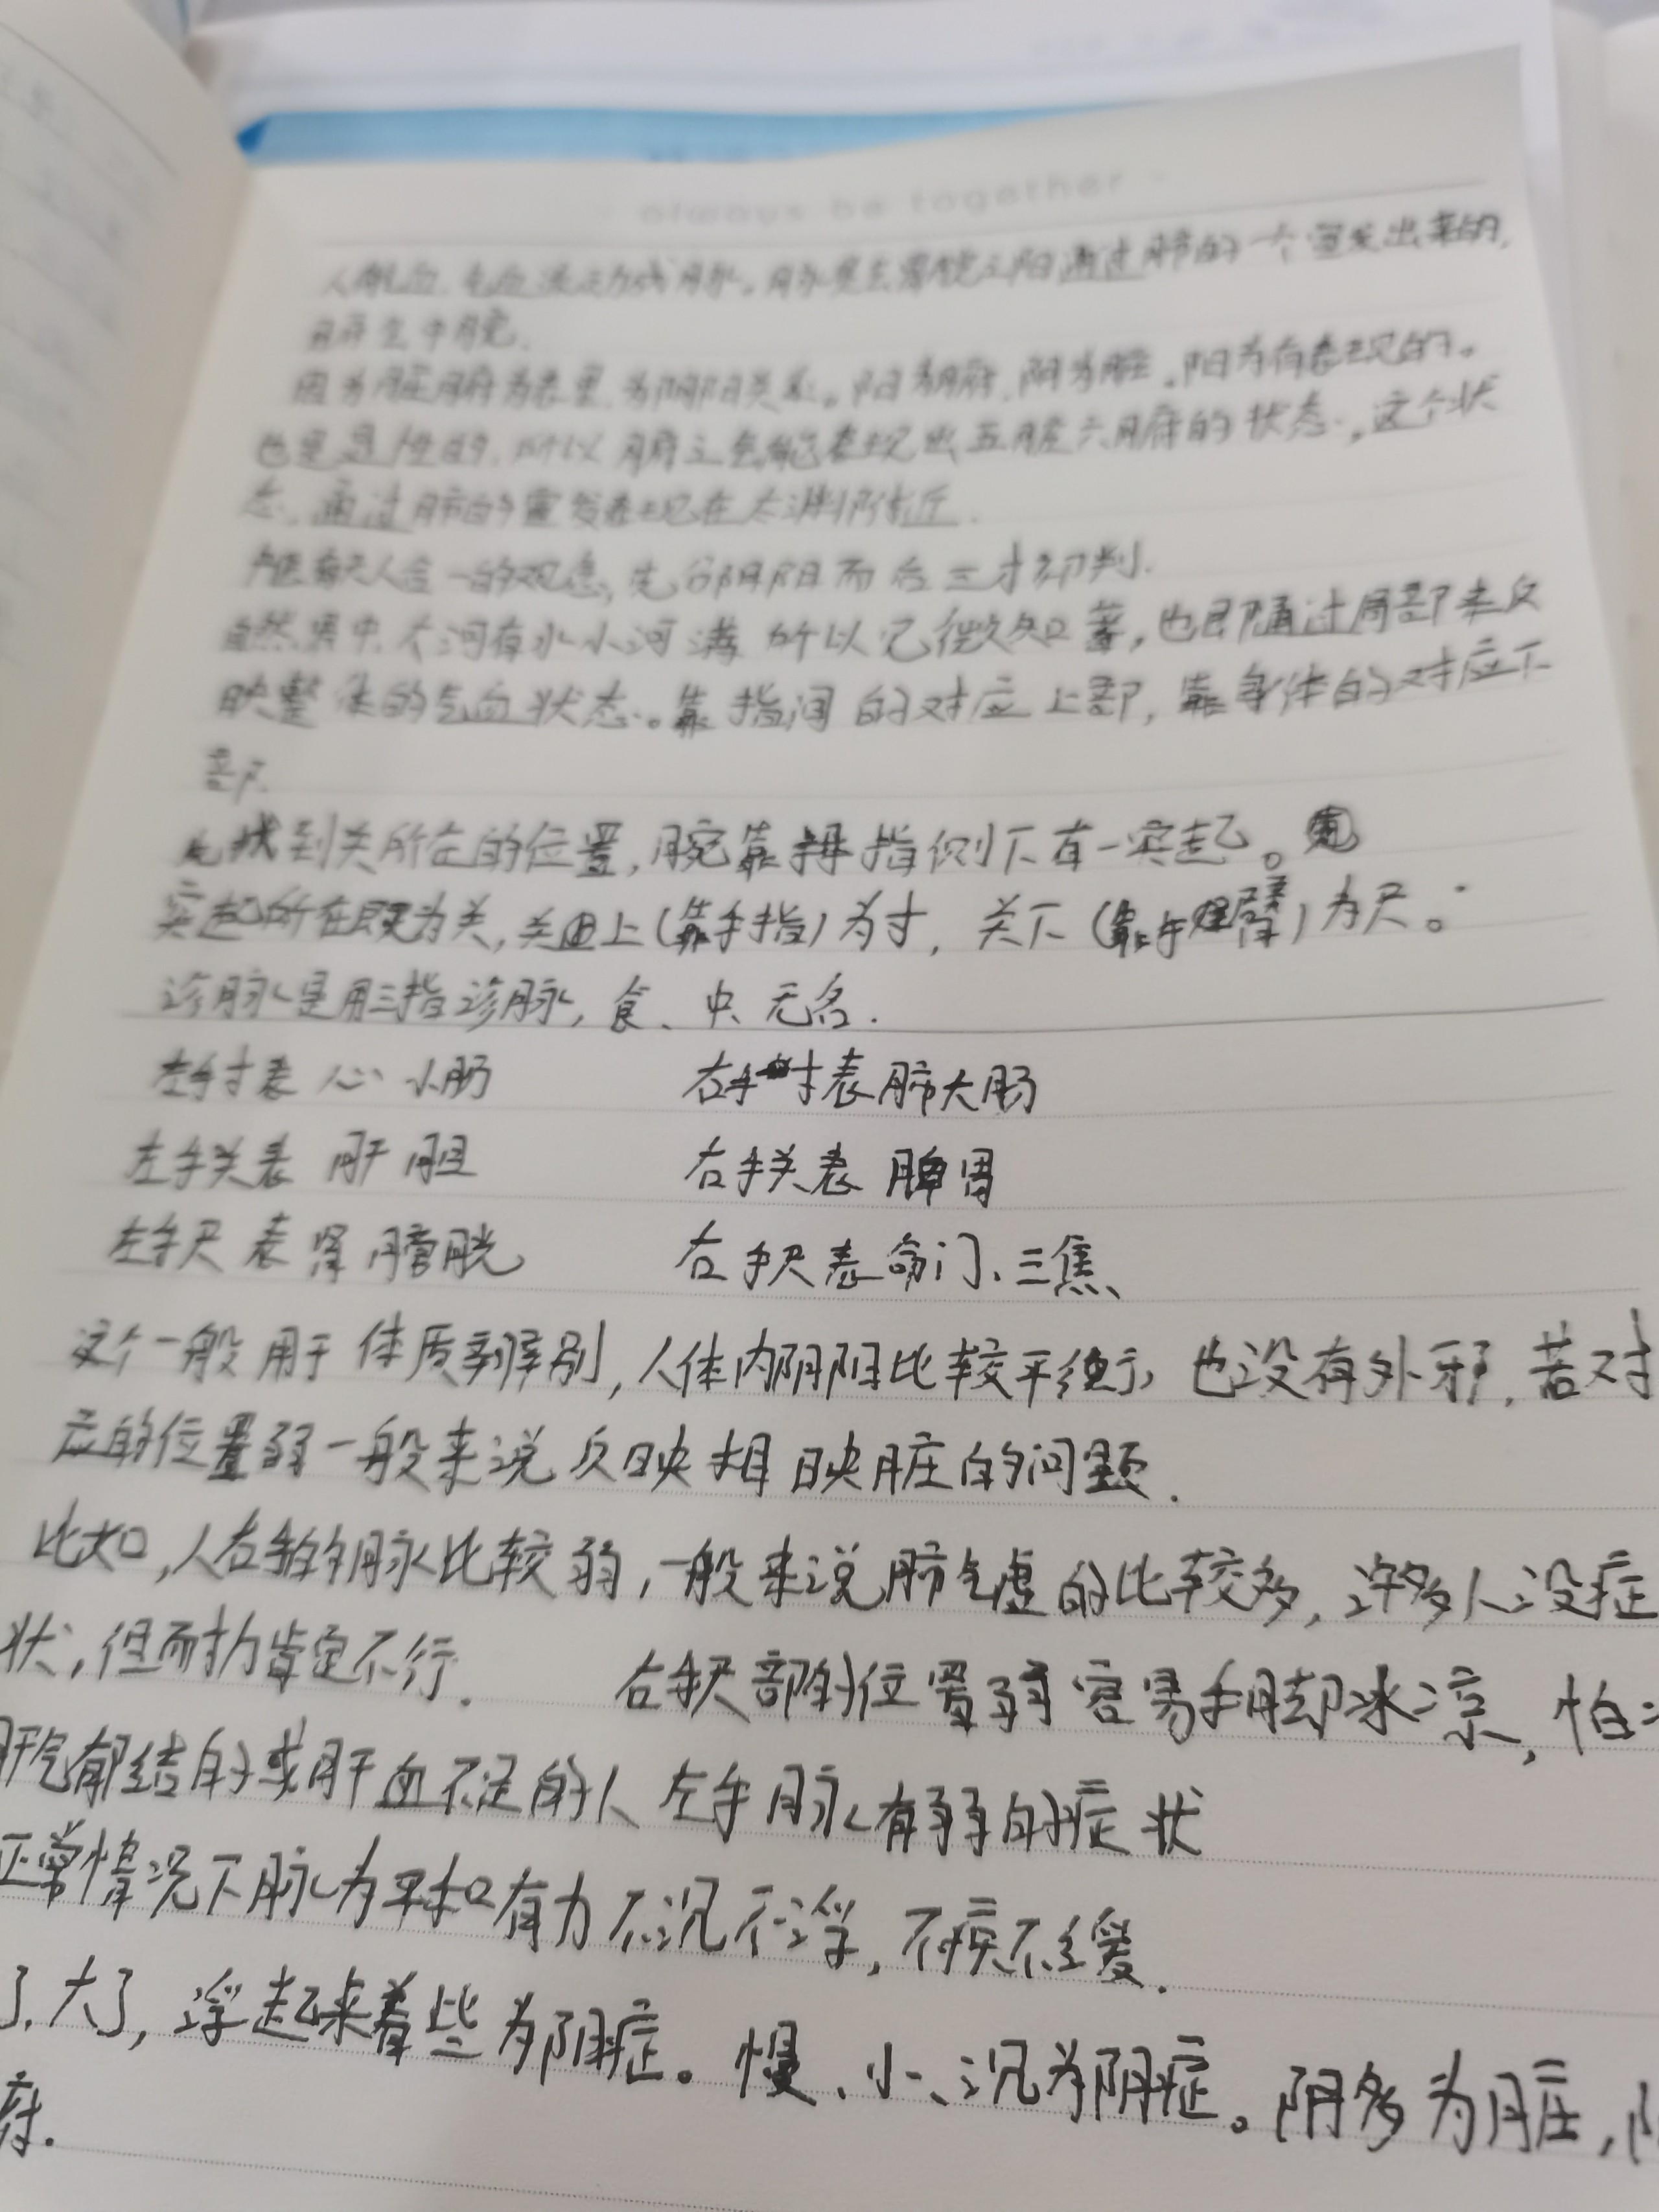 always be together
人 血,气血流动成脉。脉是去胃脘之阳通过肺的一个宣发出来的,
中脘.
因为脏腑为表里,为阴阳关系。阳为腑,阴为脏,阳为有表现的。
也是 的,所以腑之气能表现出五脏六腑的状态,这个状
态,通过肺的宣发表现在太渊附近.
天人合一的观念,先分阴阳而后三才 判.
自然界中,大河有水小河满 所以 微知著,也即通过局部来反
映整体的气血状态。靠指间的对应上部,靠身体的对应下
部.
先找到关所在的位置,腕靠拇指侧下有一突起。
突起所在既为关,关上(靠手指)为寸,关下(靠手臂)为尺。
诊脉是用三指诊脉,食、中、无名.
左手寸表 心 小肠 右手寸表肺大肠
左手关表 肝胆 右手关表 脾胃
左手尺 表 肾 膀胱 右手尺表命门、三焦
这个一般用于体质辨别,人体内阴阳比较平衡,也没有外邪,若对
应的位置弱一般来说反映相映脏的问题.
比如,人右手的脉比较弱,一般来说肺气虚的比较多,许多人没症
状,但耐力肯定不行. 右手尺部的位置弱容易手脚冰凉,怕
肝气郁结的或肝血不足的人 左手脉有弱的症状
正常情况下脉为平和有力不沉不浮,不疾不缓.
了.大了,浮起来着些为阳症。慢、小、沉为阴症。阴多为脏,
府.